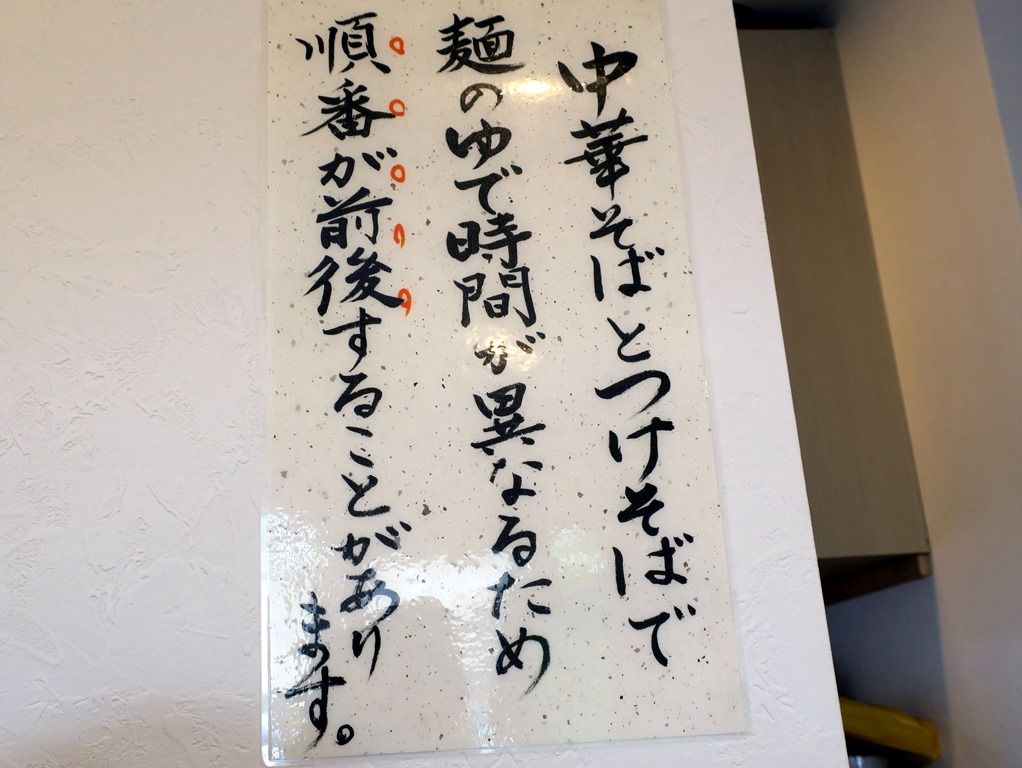 中華そばとつけそばで
麺のゆで時間が異なるため
順番が前後することがあり
ます。